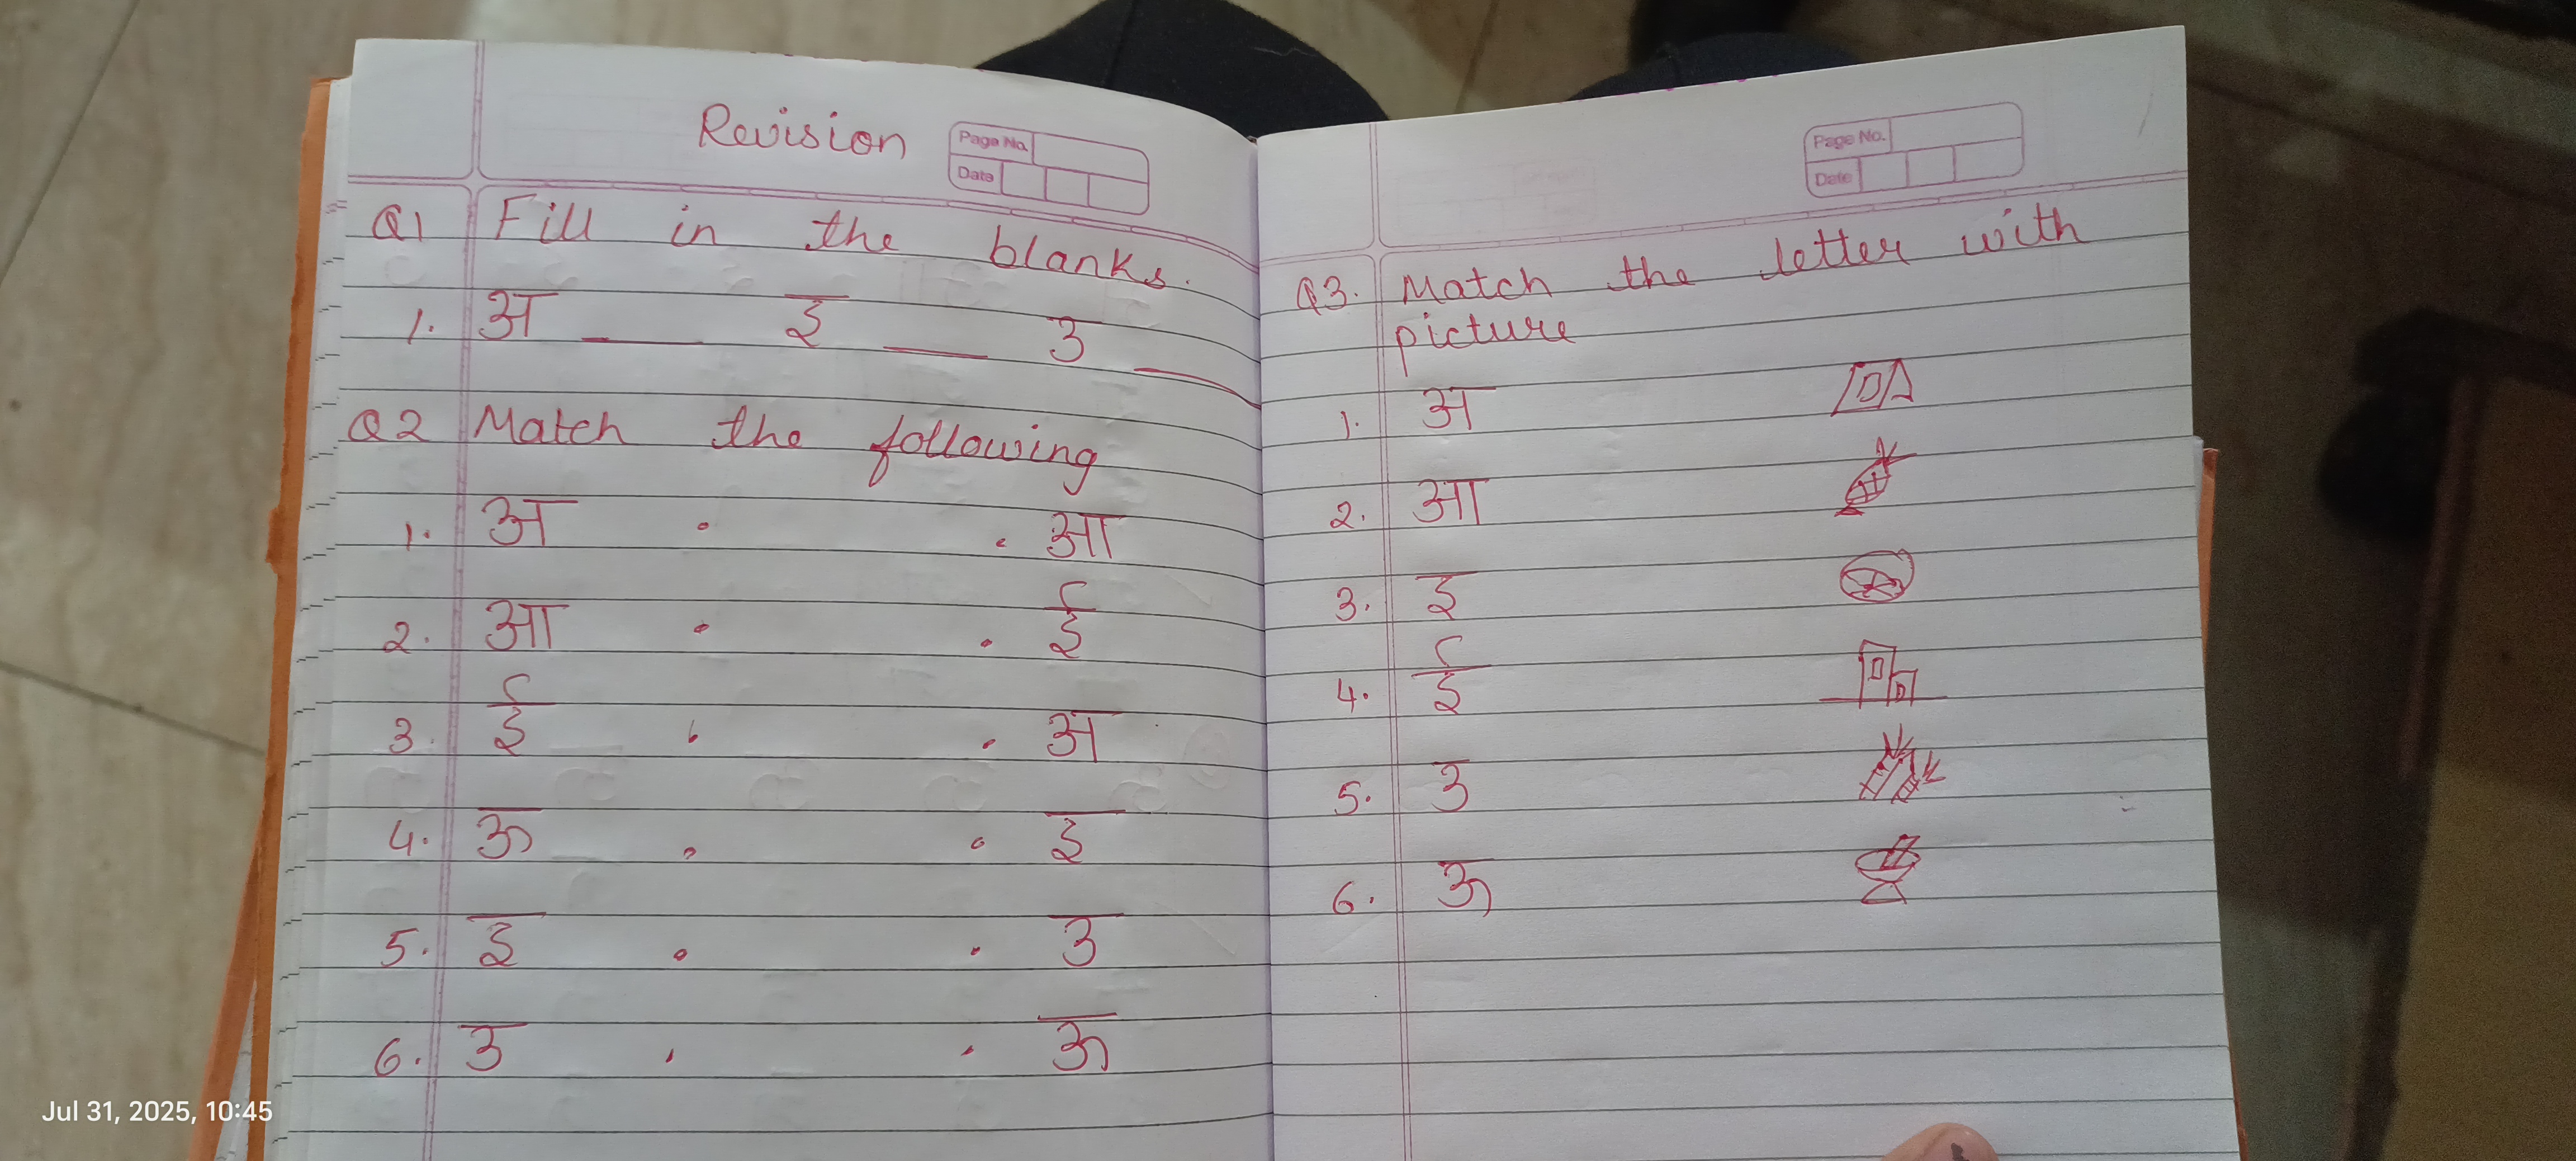 Revision
Page No.
Date
Q1 Fill in the blanks.
1. अ ____ इ ____ उ ____
Q2 Match the following
1. अ . . आ
2. आ . . ई
3. ई . . अ
4. ऊ . . इ
5. इ . . उ
6. उ . . ऊ
Page No.
Date
Q3. Match the letter with
picture
1. अ
2. आ
3. इ
4. ई
5. उ
6. ऊ
Jul 31, 2025, 10:45